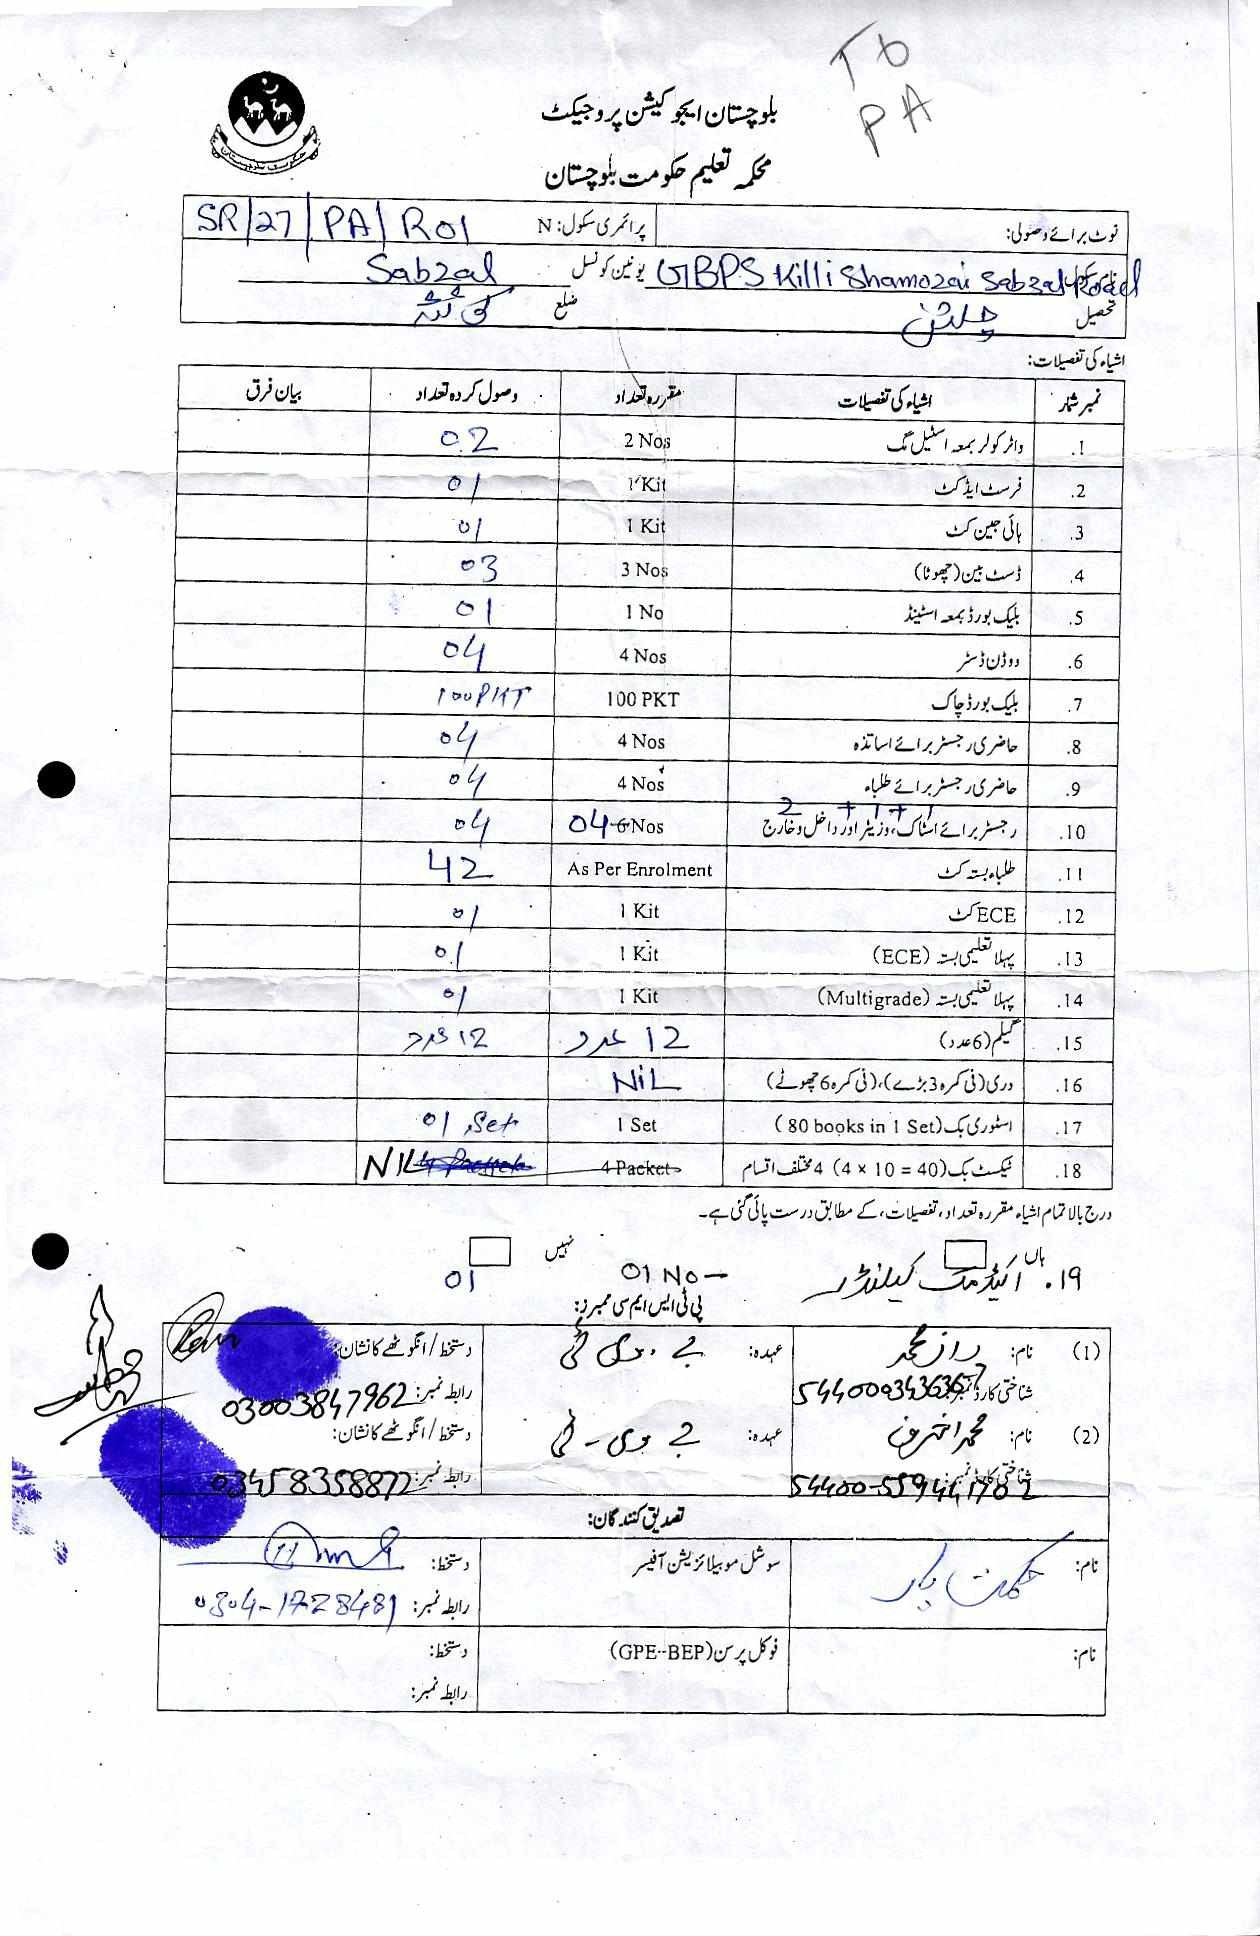 To
PA
بلوچستان ایجوکیشن پروجیکٹ
محکمہ تعلیم حکومت بلوچستان
نوٹ برائے وصولی: پرائمری سکول: N SR/27/PA/R01
نام سکول GBPS Killi Shamozai Sabzal Road یونین کونسل Sabzal
تحصیل چلتن ضلع کوئٹہ
اشیاء کی تفصیلات:
نمبر شمار اشیاء کی تفصیلات مقررہ تعداد وصول کردہ تعداد بیان فرق
.1 واٹر کولر بمعہ اسٹیل مگ 2 Nos 02
.2 فرسٹ ایڈ کٹ 1 Kit 01
.3 ہائی جین کٹ 1 Kit 01
.4 ڈسٹ بین (چھوٹا) 3 Nos 03
.5 بلیک بورڈ بمعہ اسٹینڈ 1 No 01
.6 ووڈن ڈسٹر 4 Nos 04
.7 بلیک بورڈ چاک 100 PKT 100 PKT
.8 حاضری رجسٹر برائے اساتذہ 4 Nos 04
.9 حاضری رجسٹر برائے طلباء 4 Nos 04
2 + 1 + 1
.10 رجسٹر برائے اسٹاک، وزیٹر اور داخل و خارج 04 6 Nos 04
.11 طلباء بستہ کٹ As Per Enrolment 42
.12 ECE کٹ 1 Kit 01
.13 پہلا تعلیمی بستہ (ECE) 1 Kit 01
.14 پہلا تعلیمی بستہ (Multigrade) 1 Kit 01
.15 گیلم (6 عدد) 12 عدد 12 عدد
.16 دری (فی کمرہ 3 بڑے)، (فی کمرہ 6 چھوٹے) NiL
.17 اسٹوری بک (80 books in 1 Set) 1 Set 01 Set
.18 ٹیکسٹ بک (4 × 10 = 40) 4 مختلف اقسام 4 Packet NIL
درج بالا تمام اشیاء مقررہ تعداد، تفصیلات، کے مطابق درست پائی گئی ہے۔
ہاں نہیں
۱۹. اکیڈمک کیلنڈر 01 No 01
پی ٹی ایس ایم سی ممبرز:
(1) نام: راز محمد عہدہ: جے وی ٹی دستخط/انگوٹھے کا نشان:
شناختی کارڈ نمبر: رابطہ نمبر: 03003847962
(2) نام: محمد اشرف عہدہ: جے وی ٹی دستخط/انگوٹھے کا نشان:
شناختی کارڈ نمبر: 54400-559441702 رابطہ نمبر: 03458358872
تصدیق کنندگان:
نام: حکمت یار سوشل موبیلائزیشن آفیسر دستخط:
رابطہ نمبر: 0304-1728481
نام: فوکل پرسن (GPE-BEP) دستخط:
رابطہ نمبر: